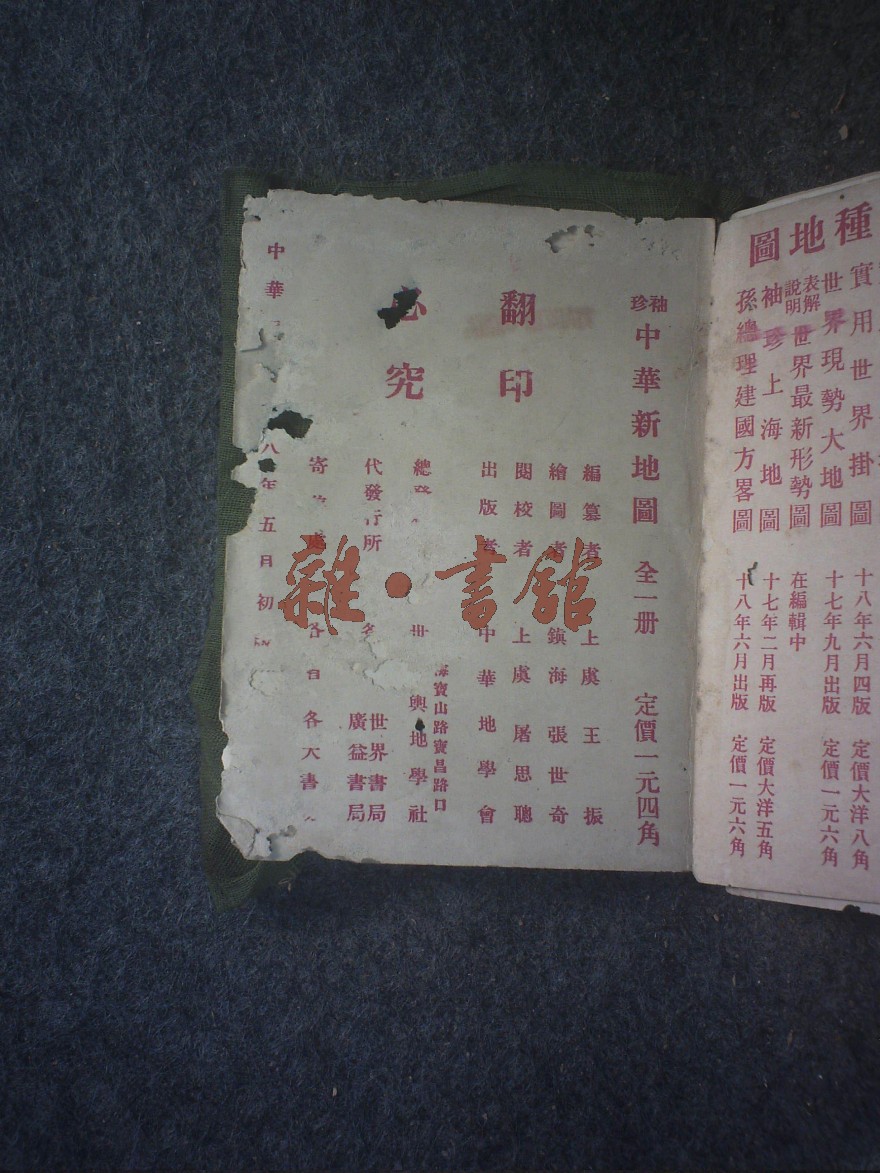 種地圖
實用世界掛圖 十八年六月四版 定價大洋八角
世界現勢大地圖 十七年九月出版 定價一元六角
表解說明世界最新形勢圖 在編輯中
袖珍上海地圖 十七年二月再版 定價大洋五角
孫總理建國方畧圖 十八年六月出版 定價一元六角
袖珍中華新地圖 全一册 定價一元四角
編纂者 上虞王振
繪圖者 鎮海張世奇
閱校者 上虞屠思聰
翻印必究
出版者 中華地學會
海寶山路寶昌路口
總發 輿地學社
代發行所 世界書局
廣益書局
寄 處 各 各大書
中華 八年五月初
雜·書館